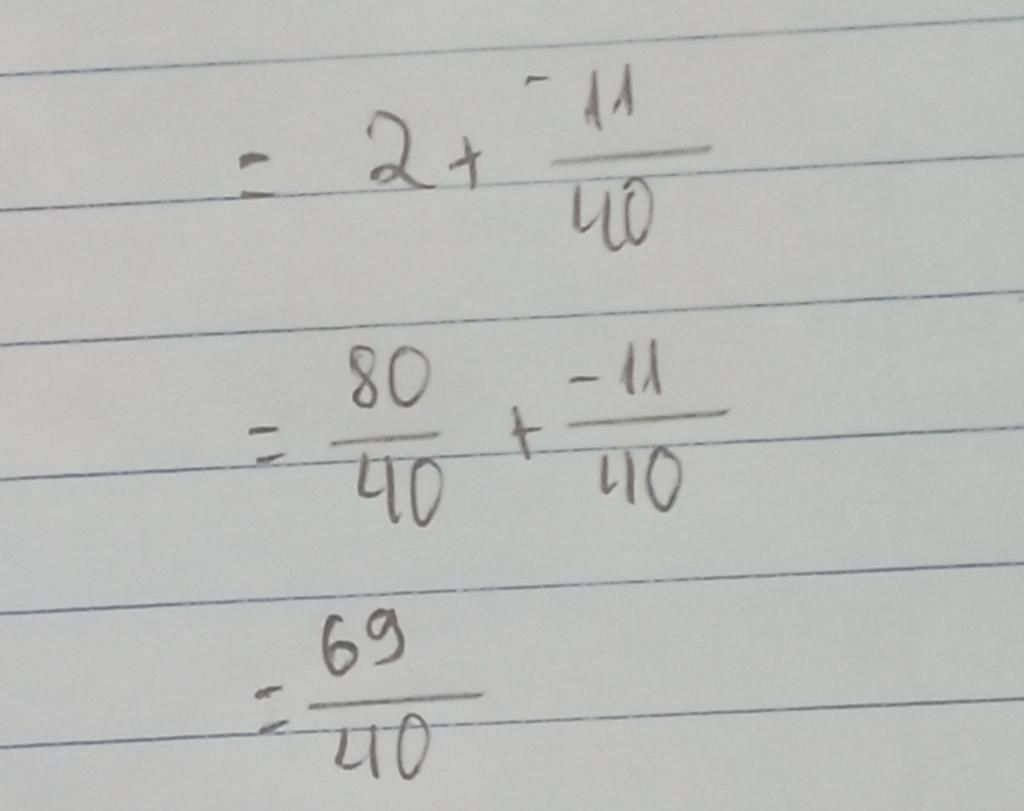 = 2 + -11/40
= 80/40 + -11/40
= 69/40